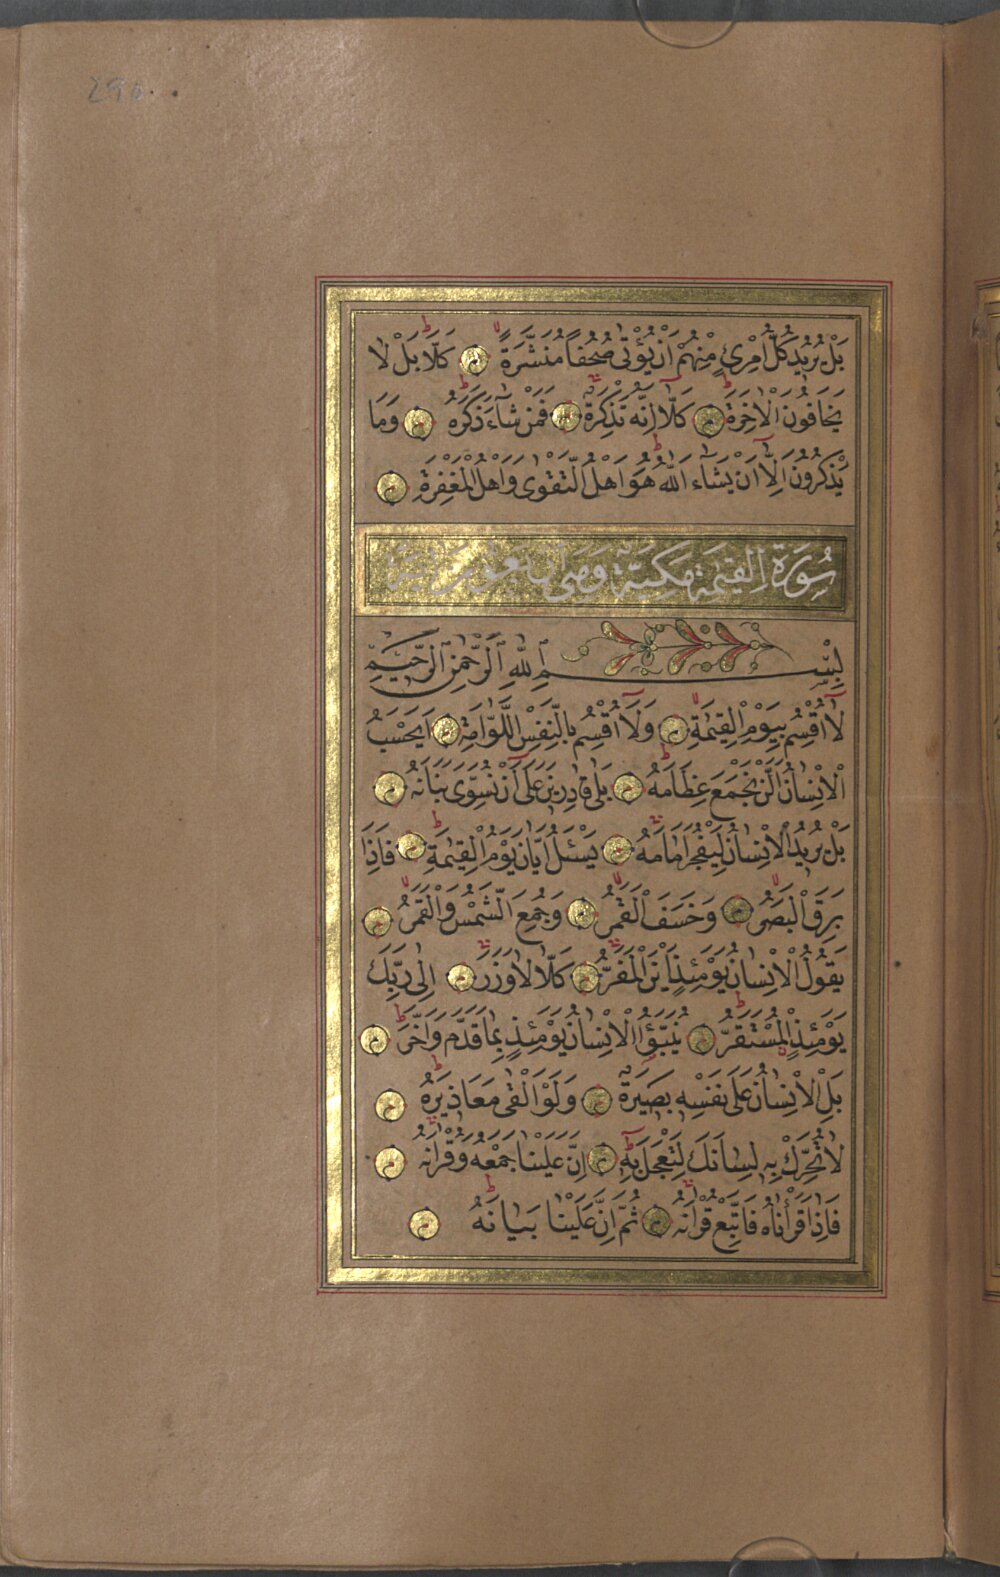 295
بَلْ يُرِيدُ كُلُّ امْرِئٍ مِنْهُمْ اَنْ يُؤْتٰى صُحُفًا مُنَشَّرَةً كَلَّا بَلْ لَا
يَخَافُونَ الْاٰخِرَةَ كَلَّا اِنَّهُ تَذْكِرَةٌ فَمَنْ شَاءَ ذَكَرَهُ وَمَا
يَذْكُرُونَ اِلَّا اَنْ يَشَاءَ اللّٰهُ هُوَ اَهْلُ التَّقْوٰى وَاَهْلُ الْمَغْفِرَةِ
سُورَةُ الْقِيٰمَةِ مَكِّيَّةٌ وَهِىَ اَرْبَعُونَ
بِسْمِ اللّٰهِ الرَّحْمٰنِ الرَّحِيمِ
لَا اُقْسِمُ بِيَوْمِ الْقِيٰمَةِ وَلَا اُقْسِمُ بِالنَّفْسِ اللَّوَّامَةِ اَيَحْسَبُ
الْاِنْسَانُ اَلَّنْ نَجْمَعَ عِظَامَهُ بَلٰى قَادِرِينَ عَلٰى اَنْ نُسَوِّىَ بَنَانَهُ
بَلْ يُرِيدُ الْاِنْسَانُ لِيَفْجُرَ اَمَامَهُ يَسْئَلُ اَيَّانَ يَوْمُ الْقِيٰمَةِ فَاِذَا
بَرِقَ الْبَصَرُ وَخَسَفَ الْقَمَرُ وَجُمِعَ الشَّمْسُ وَالْقَمَرُ
يَقُولُ الْاِنْسَانُ يَوْمَئِذٍ اَيْنَ الْمَفَرُّ كَلَّا لَا وَزَرَ اِلٰى رَبِّكَ
يَوْمَئِذٍ الْمُسْتَقَرُّ يُنَبَّؤُا الْاِنْسَانُ يَوْمَئِذٍ بِمَا قَدَّمَ وَاَخَّرَ
بَلِ الْاِنْسَانُ عَلٰى نَفْسِهِ بَصِيرَةٌ وَلَوْ اَلْقٰى مَعَاذِيرَهُ
لَا تُحَرِّكْ بِهِ لِسَانَكَ لِتَعْجَلَ بِهِ اِنَّ عَلَيْنَا جَمْعَهُ وَقُرْاٰنَهُ
فَاِذَا قَرَأْنَاهُ فَاتَّبِعْ قُرْاٰنَهُ ثُمَّ اِنَّ عَلَيْنَا بَيَانَهُ